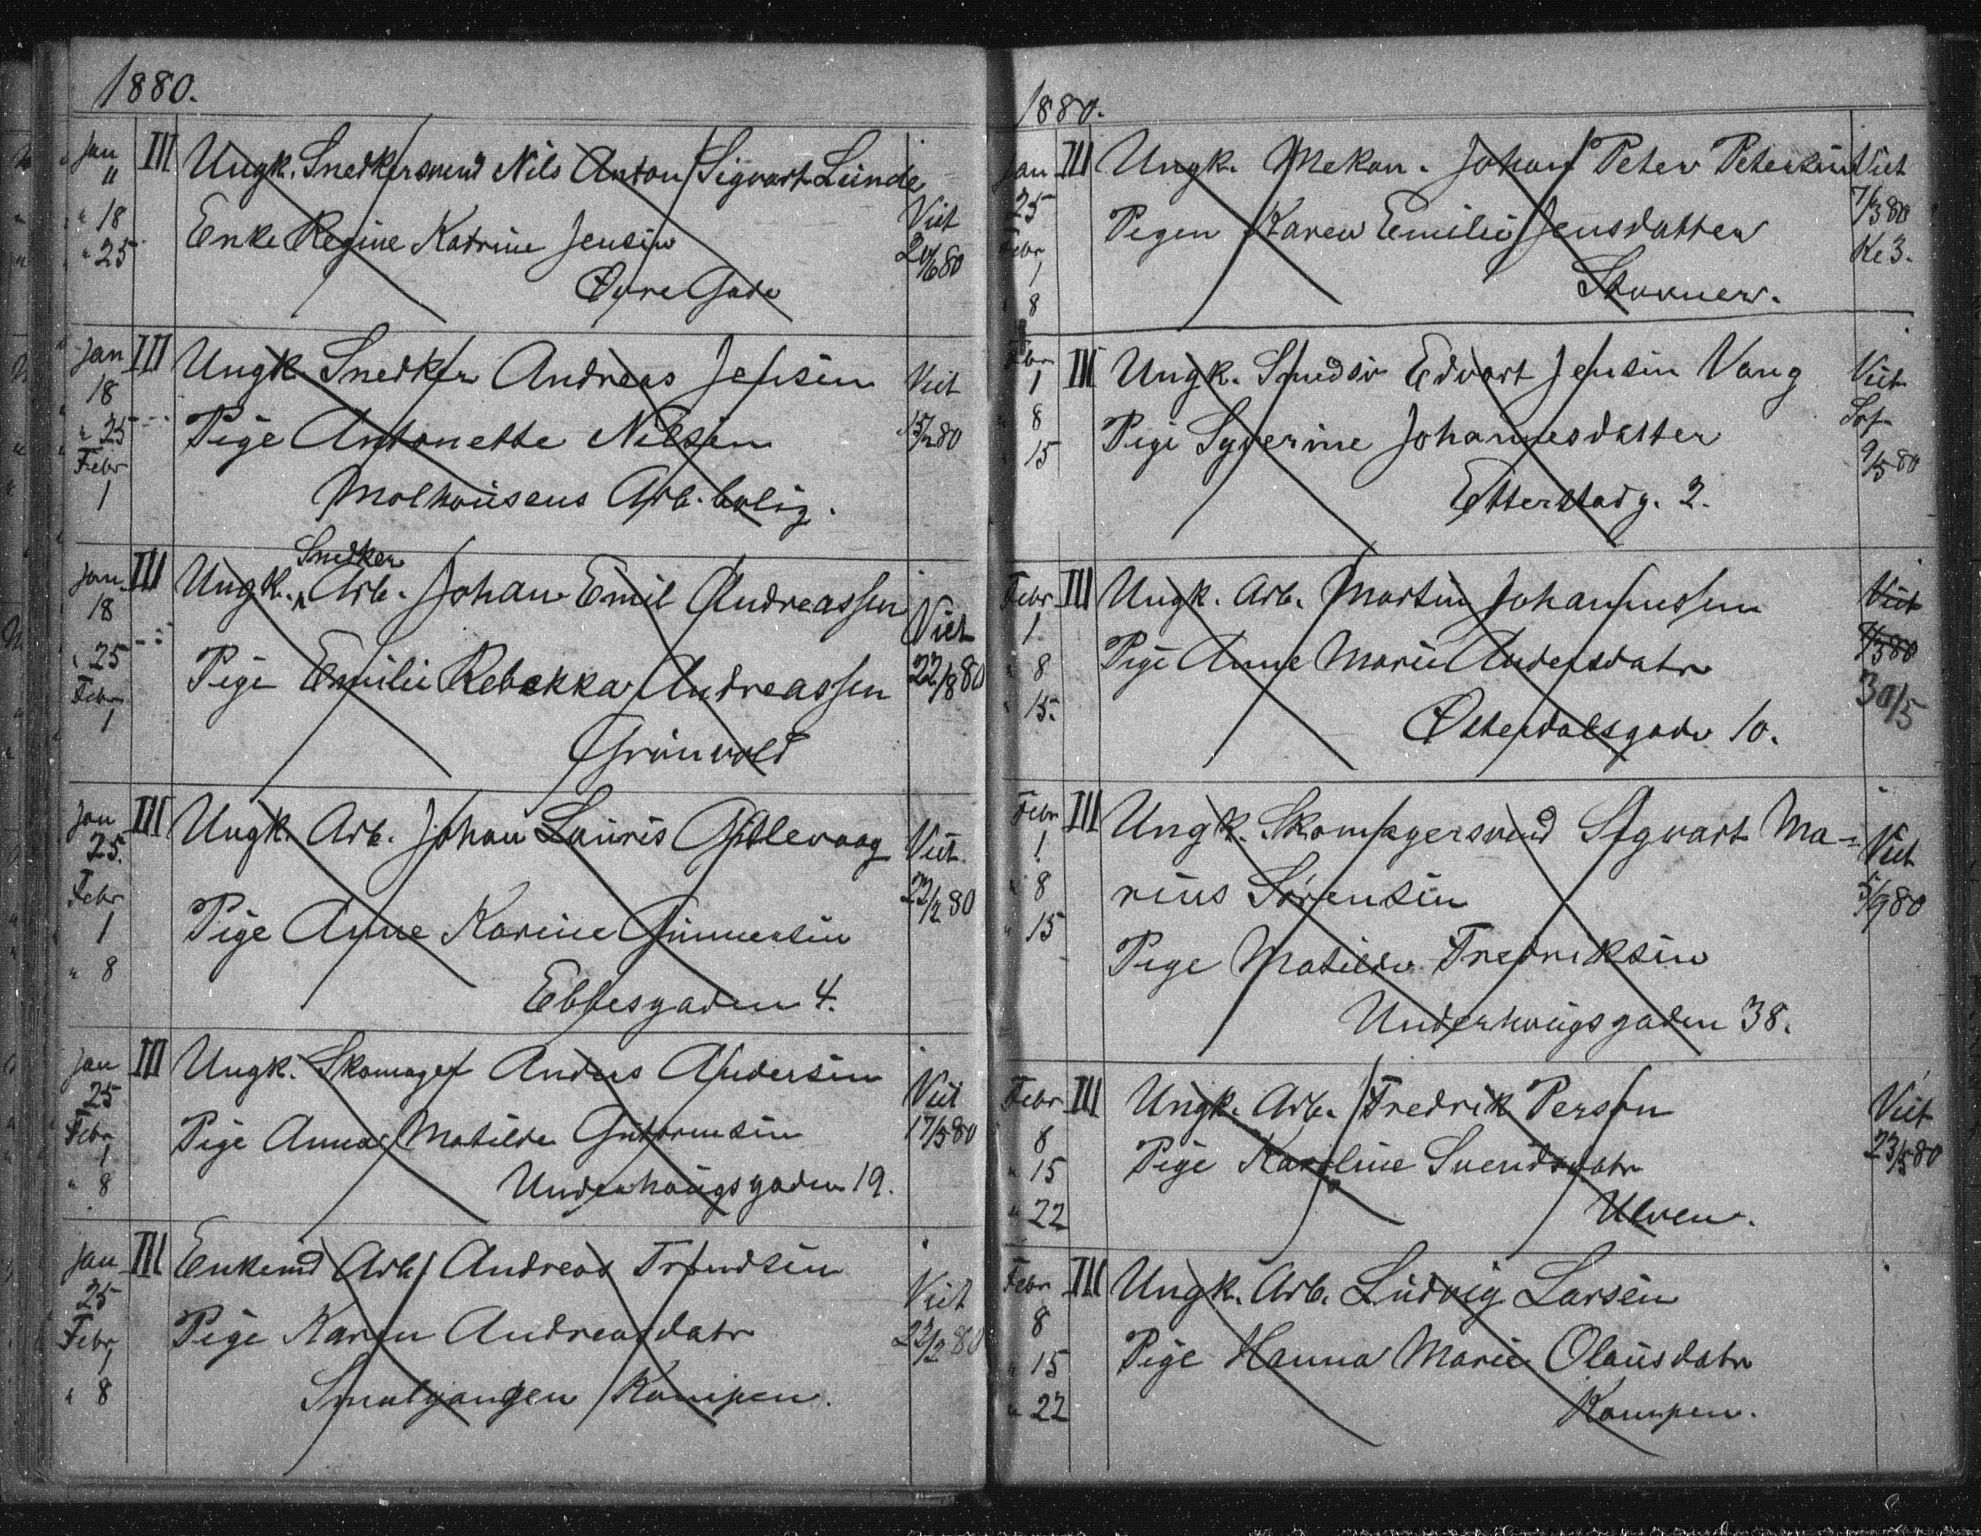 1880.
Jan III Ungk. Snedkersvend Nils Anton Sigvart Lunde
"
" 18 Enke Regine Katrine Jensen Viet
" 25 /6 80
Øvre Gade
Jan III Ungk. Snedker Andreas Jensen Viet
18
" 25 Pige Antonette Nilsen 15/2 80
Febr
1 Molhousens Arb. bolig.
Snedker
Jan III Ungk. Arb. Johan Emil Andreassen Viet
18
" 25 Pige Emilie Rebekka Andreassen 22/8 80
Febr
1 Grünvold
Jan III Ungk. Arb. Johan Lauris Gitlevaag Viet
25.
Febr
1 Pige Anne Karine Gunnersen 22/2 80
" 8 Ebbesgaden 4.
Jan III Ungk. Skomager Anders Andersen Viet
25
Febr Pige Anna Matilde Guttormsen 17/5 80
1
" 8 Underhaugsgaden 19.
Jan III Enkemd Arb. Andreas Trondsen Viet
25
Febr Pige Karen Andreasdatr 22/2 80
1
" 8 Smalgangen Kampen.
1880.
Jan III Ungk. Mekan. Johan Peter Petersen Viet
25 7/3 80
Febr Pigen Karen Emilie Jensdatter Ke 3.
1
8
Febr III Ungk. Smedsv Edvart Jensen Vang Viet
1
8 Pige Syverine Johannesdatter
15 9/5 80
Etterstadg. 2.
Febr III Ungk. Arb. Martin Johannessen Viet
1 7/3 80
" 8 Pige Anne Marie Andersdatr 30/5
" 15. Østerdalsgade 10.
Febr III Ungk. Skomagersvend Sigvart Ma-
1 Viet
" 8 rius Sørensen 5/9 80
" 15
Pige Matilde Fredriksen
Underhaugsgaden 38.
Febr III Ungk. Arb. Fredrik Person Viet
8
" 15 Pige Karoline Svendsdatr 23/5 80
" 22 Ulven.
Febr III Ungk. Arb. Ludvig Larsen
8
" 15 Pige Hanna Marie Olausdatr
" 22 Kampen.